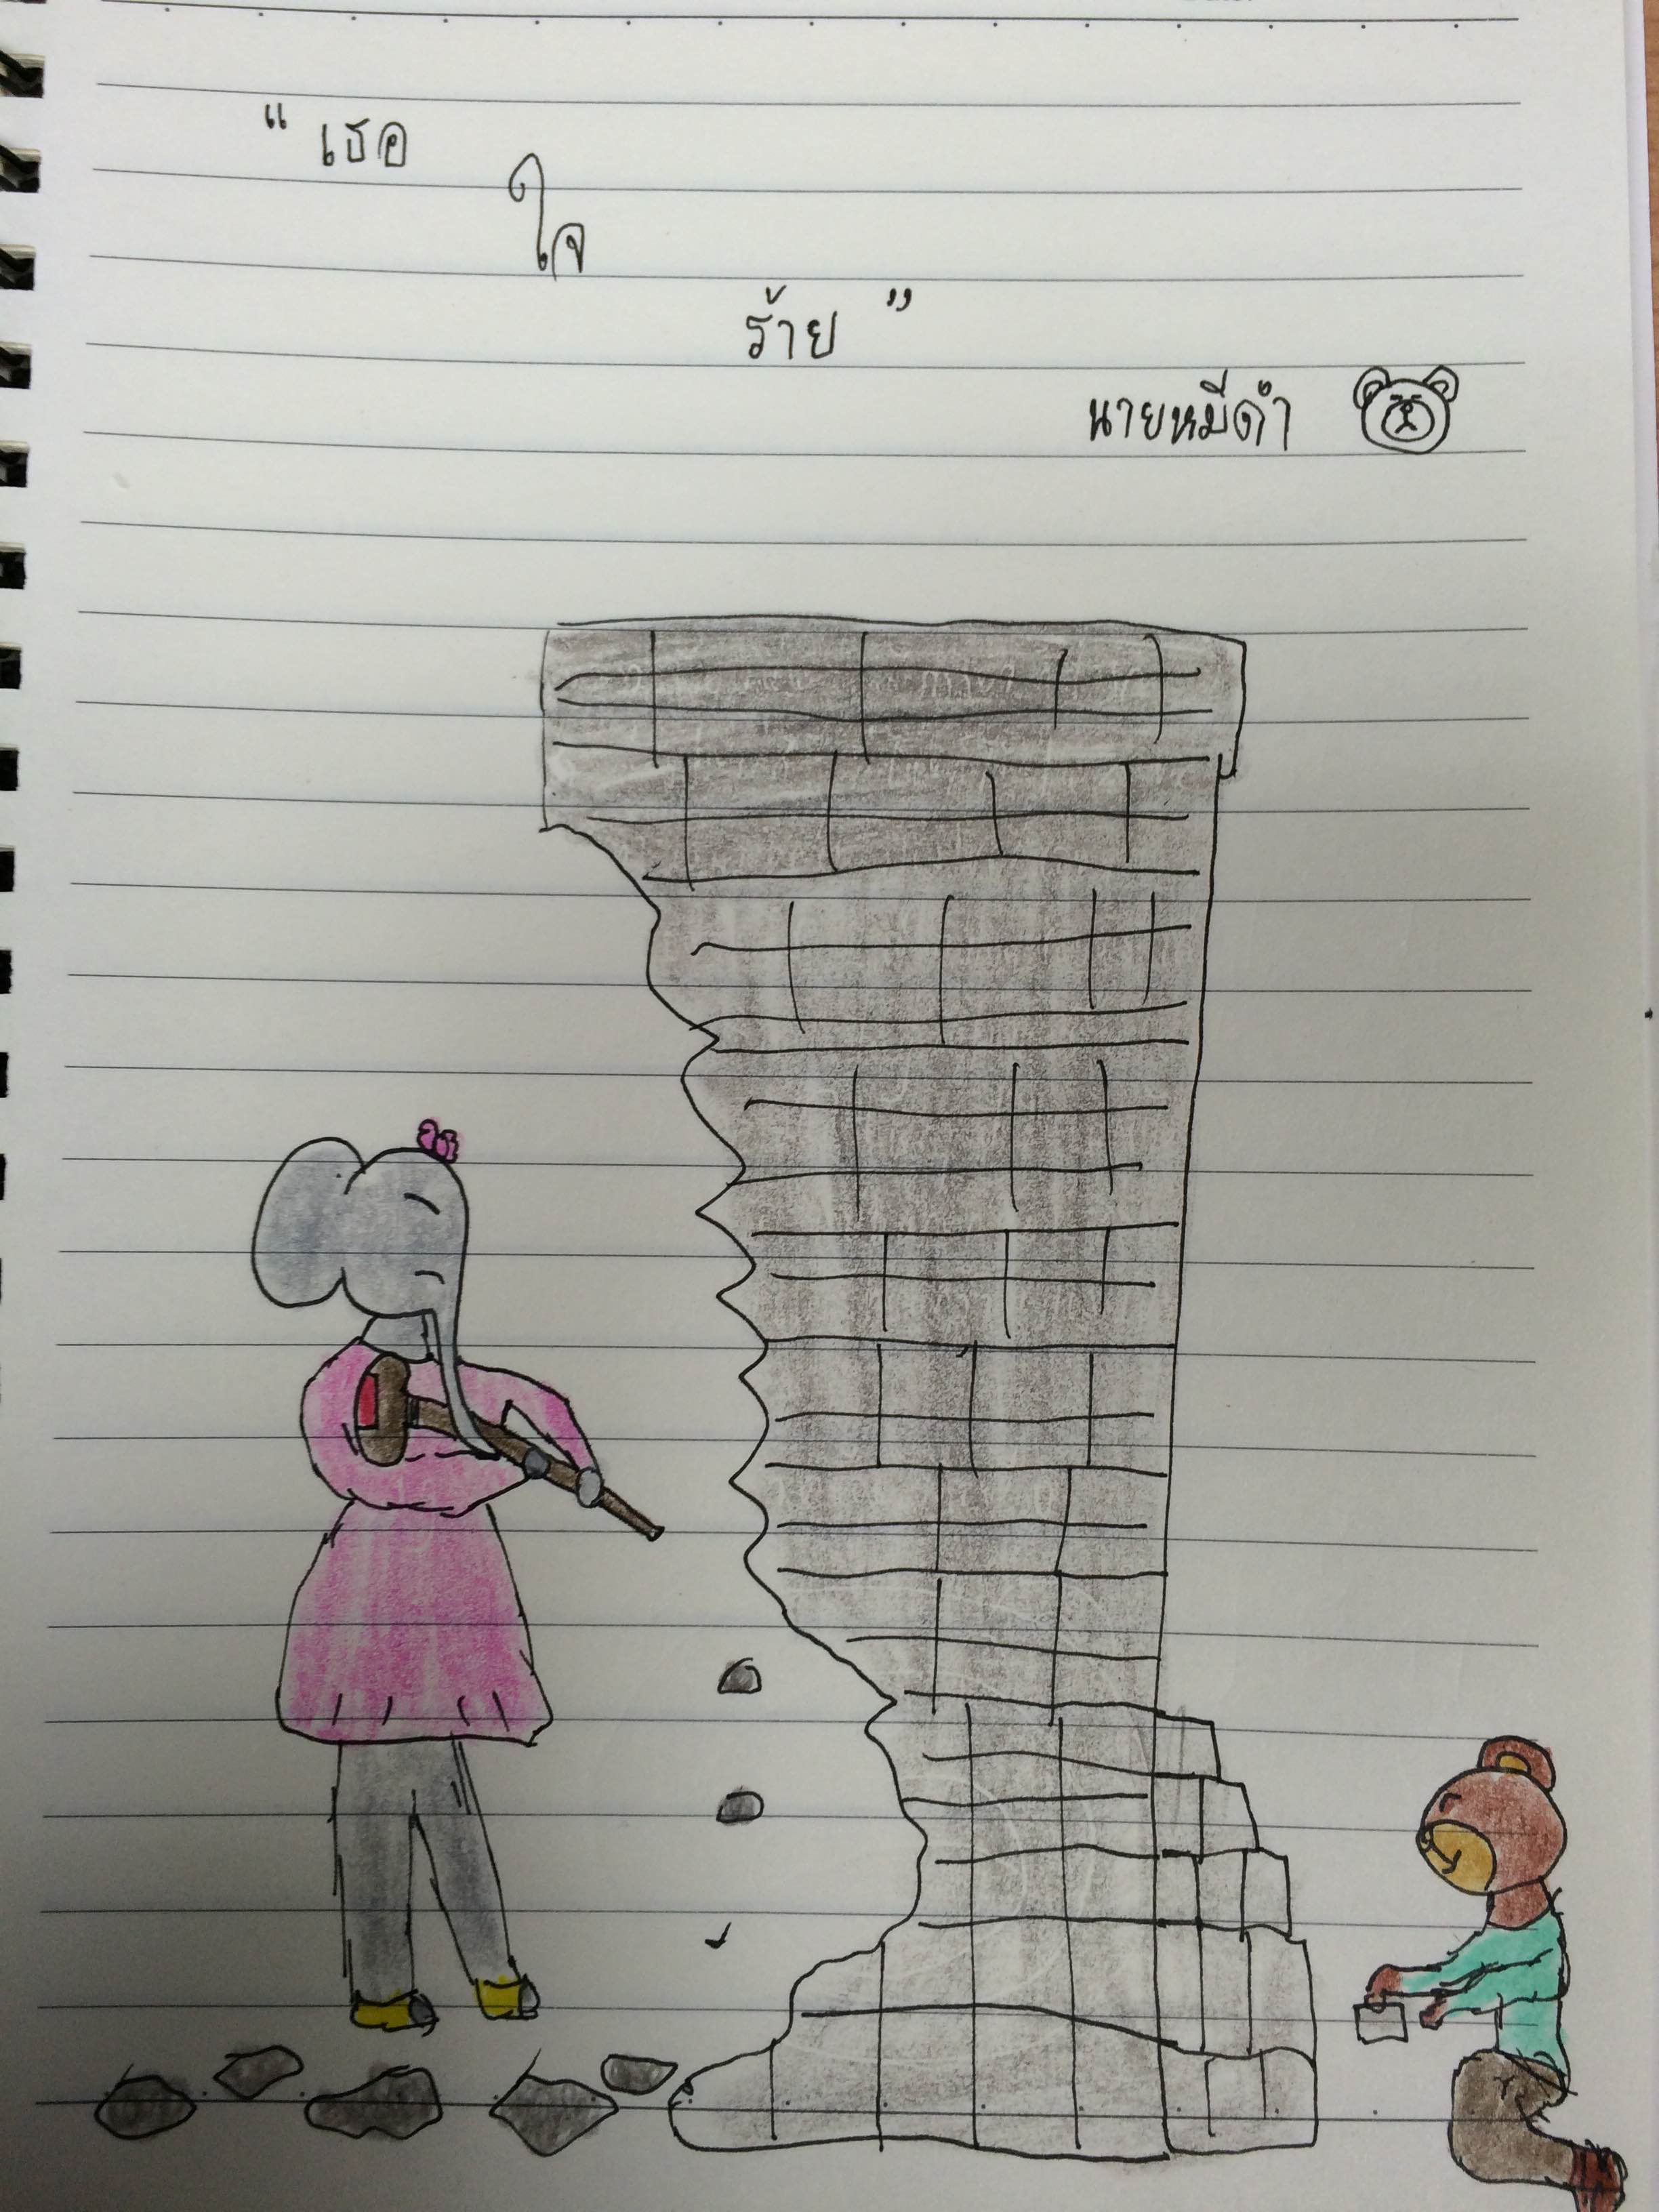 “ เธอ
ใจ
ร้าย ”
นายหมีดำ